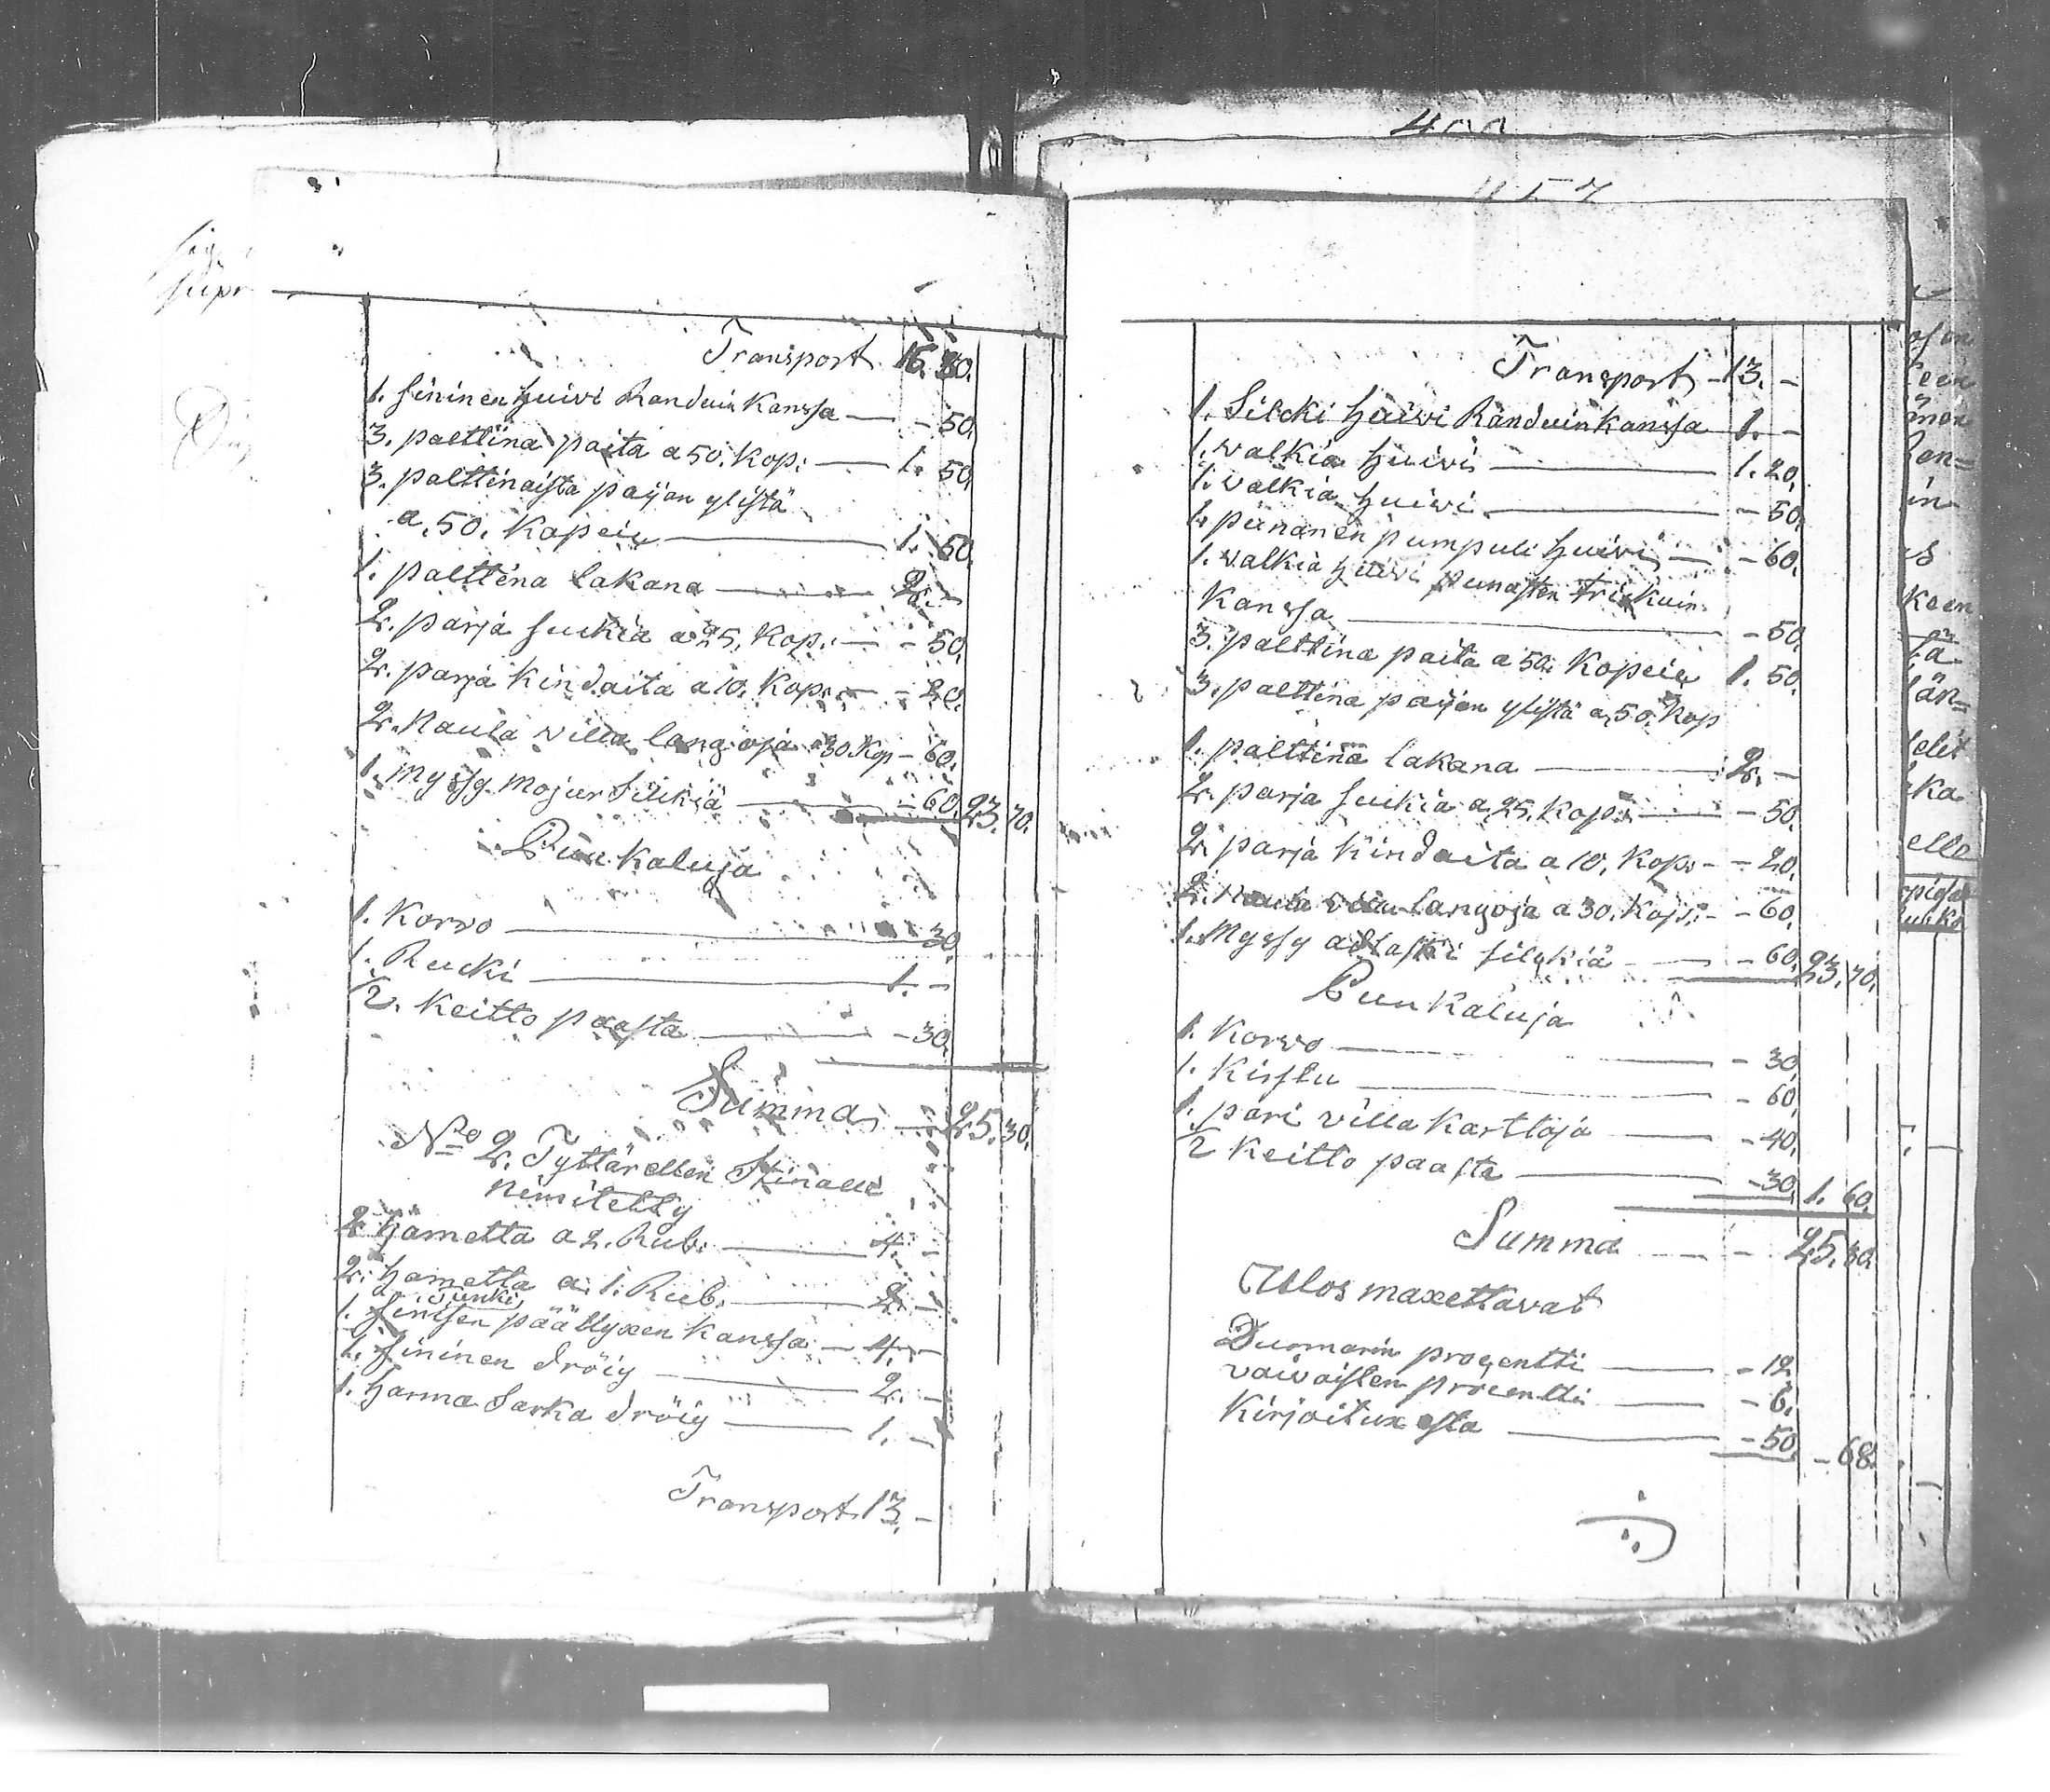 Transport 16. 30.
1. Sininen huivi Randuin kanssa — - 50.
3. palttina paita a 50. Kop. — 1. 50.
3. palttinaista paijan ylistä
a. 50. Kopeia — 1. 50.
1. palttina lakana — 2. -
2. parja Sukia a 25. Kop. — - 50.
2. parja Kindaita a 10. Kop. — - 20.
2. Naula villa langoja a 30. Kop - 60.
1. Myssy Silkiä — - 60. 23. 70.
Puu Kaluja
1. Korvo — 30.
1. Rucki — 1. -
1/2. Keitto paasta — - 30.
Summa — 25. 30.
No 2. Tyttärellen Stinalle
Nimitetty
2. hametta a 2. Rub. — 4. -
2. hametta a. 1. Rub. — 2. -
1. Sinisen päällyxen kanssa — 4. -
1. Sininen dröiy — 2. -
1. harma Sarka dröiy — 1. -
Transport 13. -
457
Transport - 13. -
1. Silcki huivi Randuin kanssa 1. -
1. valkia huivi — 1. 20.
1. valkia huivi — - 50.
1. punanen pumpuli huivi — - 60.
1. valkia huivi punasten
Kanssa — - 50.
3. palttina paita a 50. Kopeia 1. 50.
3. palttina paijan ylistä a 50. Kop
1. palttina lakana — 2. -
2. parja Sukia a 25. Kop. — - 50.
2. parja Kindaita a 10. Kop. - - 20.
2. Naula villa langoja a 30. Kop. - - 60.
1. Myssy silkiä — - 60. 23. 70.
Puu Kaluja
1. Korvo — - 30.
1. Kirstu — - 60.
1. pari villa Karttoja — - 40.
1/2 Keitto paasta — - 30. 1. 60.
Summa — - 25. 30.
Ulos maxettavat
Duomarin procentti — - 12.
vaivaisten procentti — - 6.
Kirjoitux esta — - 50. - 68.